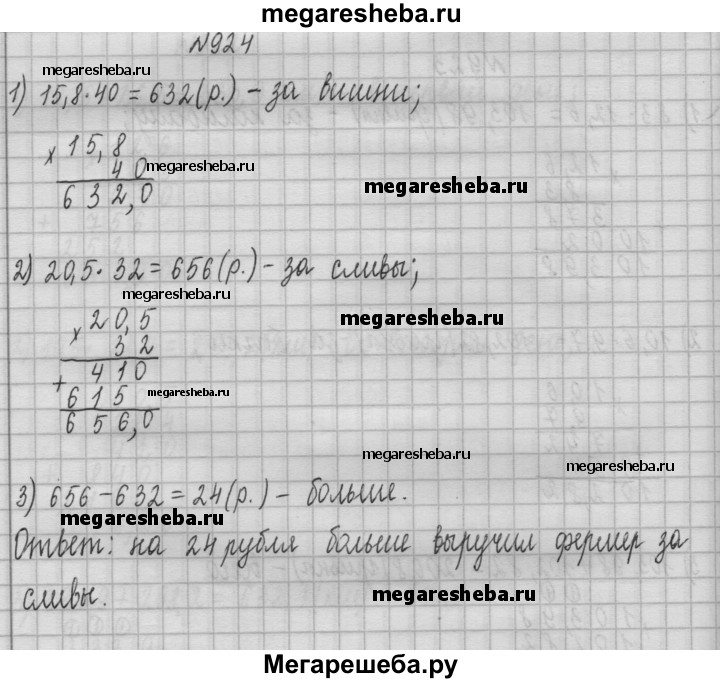 megaresheba.ru
№924
megaresheba.ru
1) 15,8·40 = 632(р.) - за вишни;
× 15,8
40
632,0
megaresheba.ru
megaresheba.ru
2) 20,5·32 = 656(р.) - за сливы;
megaresheba.ru
× 20,5
32
megaresheba.ru
+ 410
615
656,0
megaresheba.ru
megaresheba.ru
megaresheba.ru
3) 656-632 = 24(р.) - больше.
megaresheba.ru
Ответ: на 24 рубля больше выручил фермер за
сливы.
megaresheba.ru
Мегарешеба.ру